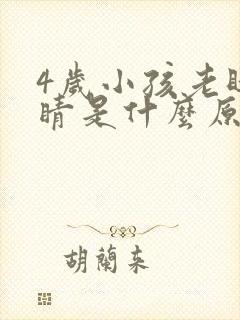 4歲小孩老
睛是什麼原
胡蘭來